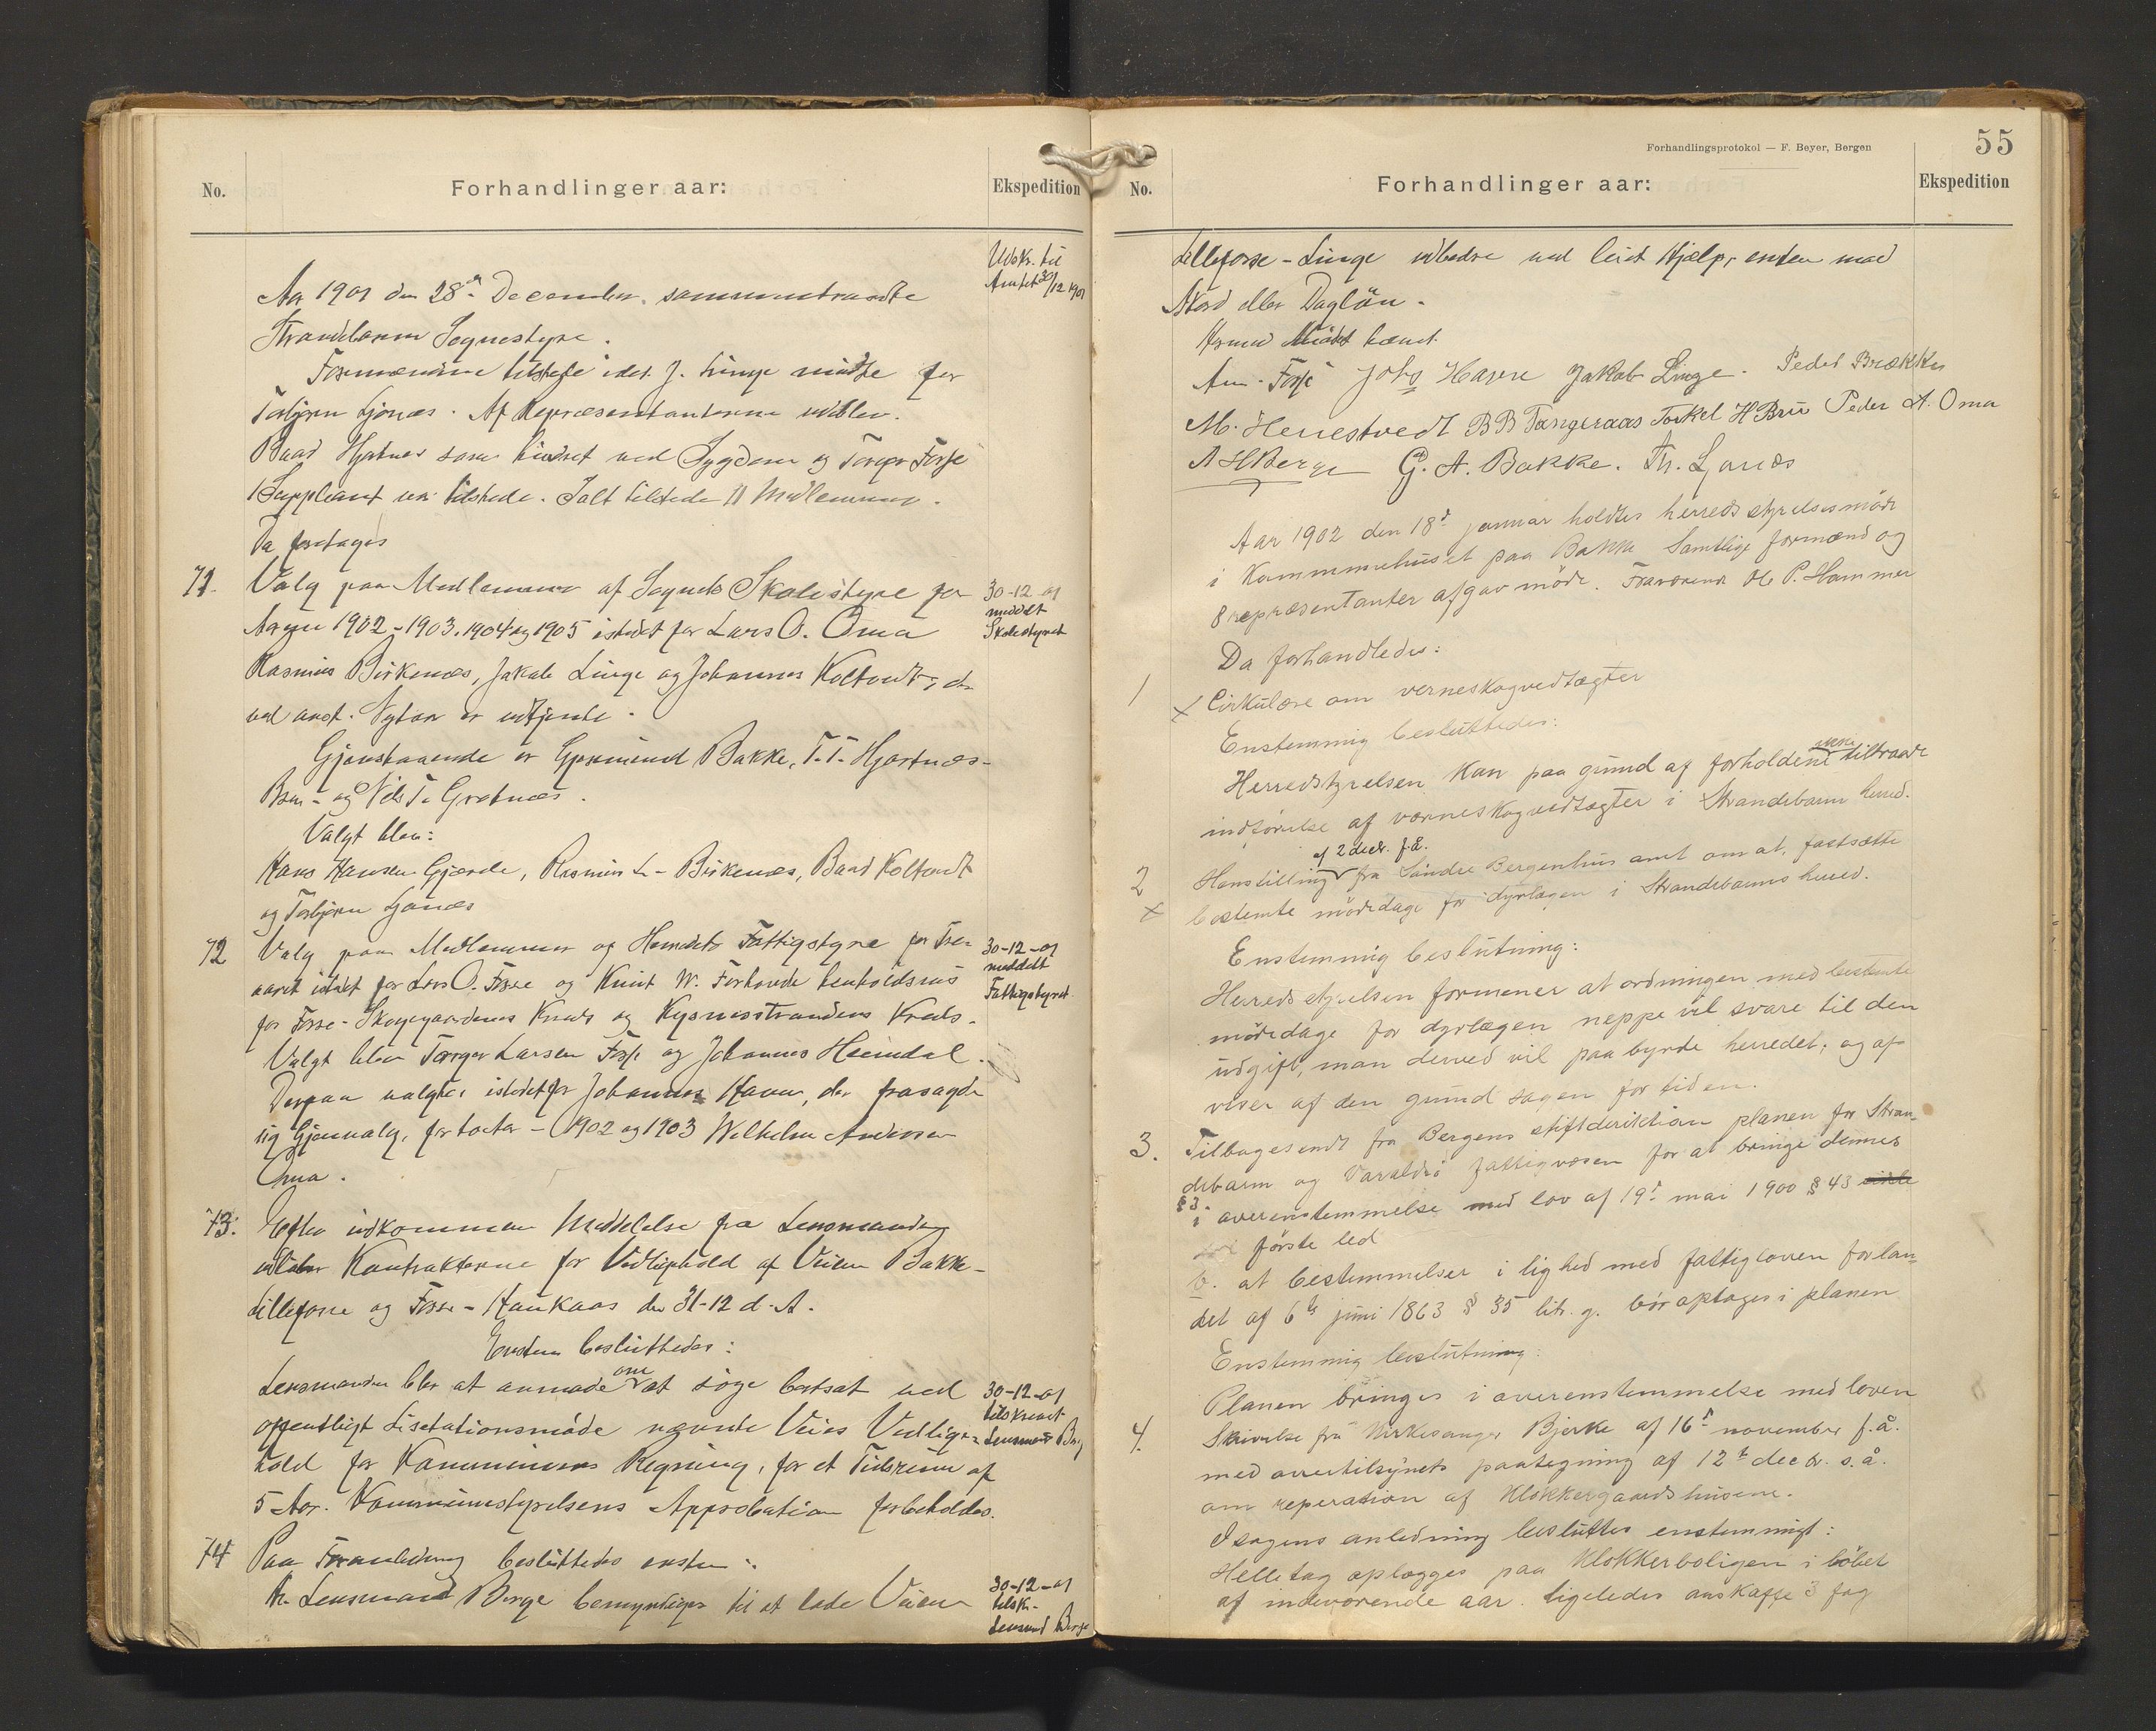 No.
Forhandlinger aar:
Ekspedition
Udskr. til
Amtet 30/12 1901
Aar 1901 den 28de December sammentraadte
Strandebarm Sognestyre.
Formændene tilstede idet J. Linge mødte for
Torbjørn Ljones. Af Repræsentanterne udeblev
Baard Hjartnes som hindret ved Sygdom og Torger Fosse
1 Suppleant var tilstede. Ialt tilstede 11 Medlemmer.
Da foretages
71.
Valg paa Medlemmer af Sognets Skolestyre for
30-12-01
meddelt
Skolestyret
Aarene 1902-1903, 1904 og 1905 istedet for Lars O. Oma
Rasmus Birkenes, Jakob Linge og Johannes Koltvedt, der
ved anst. Nytaar er udtjente.
Gjenstaaende er Gjermund Bakke, T. T. Hjartnes-
og Nils T. Grotnes.
Valgt blev:
Hans Hansen Gjerde, Rasmus L. Birkenes, Baard Koltvedt
og Torbjørn Ljones
72
Valg paa Medlemmer af Herredets Fattigstyre for Tre-
30-12-01
meddelt
Fattigstyret
aaret istedet for Lars O. Fosse og Knut W. henholdsvis
for Fosse-Skogegaardenes Kreds og Kysnesstrandens Kreds.
Valgt blev Torger Larsen Fosse og Johannes Heimdal.
Derpaa valgtes istedet for Johannes Havre, der frasagde
sig Gjenvalg, for to Aar - 1902 og 1903 Wilhelm Andersen
Oma.
73.
Efter indkommen Meddelelse fra Lensmanden
udløber Kontrakterne for Vedligehold af Veiene Bakke-
Lillefosse og Fosse-Haukaas den 31-12 d. A.
Enstem. besluttedes:
Lensmanden blev at anmode om at søge bortsat ved
30-12-01
tilskrevet
Lensmand Berge
offentligt Lisetationsmøde nævnte Veies Vedlige-
hold for Kommunens Regning, for et Tidsrum af
5 Aar. Kommunestyrelsens Approbation forbeholdes.
74
Paa Foranledning besluttedes enstem.:
Hr. Lensmand Berge bemyndiges til at lade Veien
30-12-01
tilsk.
Lensmd Berge
Forhandlingsprotokol — F. Beyer, Bergen
55
No.
Forhandlinger aar:
Ekspedition
Lillefosse-Linge udbedre ved leiet Hjælp, enten mod
Akord eller Dagløn.
Hermed Mødet hævet.
Am. Fosse Johs Havre Jakob Linge. Peder Brække
M. Henestvedt B B Tangeraas Torkel H Bru Peder A. Oma
A H Berge G. A. Bakke. Th. Ljones
Aar 1902 den 18de januar holdtes herredsstyrelsesmøde
i Kommunehuset paa Bakke Samtlige formænd og
8 repræsentanter afgav møde. Fraværende Ole P. Hammer
Da forhandledes:
1
x Cirkulære om verneskogvedtægter
Enstemmig besluttedes:
Herredstyrelsen kan paa grund af forholdene ikke tiltraade
indførelse af værneskogvedtægter i Strandebarm herred.
2
x
Henstilling af 2 decb. f.å. fra Søndre Bergenhus amt om at fastsætte
bestemte mødedage for dyrlægen i Strandebarms herred.
Enstemmig beslutning:
Herredsstyrelsen formener at ordningen med bestemte
mødedage for dyrlægen neppe vil svare til den
udgift, man derved vil paabyrde herredet, og af-
viser af den grund sagen for tiden.
3.
Tilbagesendt fra Bergens stiftdirektion planen for Stran-
debarm og Varaldsø fattigvæsen for at bringe dennes
§ 3 i overenstemmelse med lov af 19de mai 1900 § 43
første led
b. at bestemmelser i lighed med fattigloven for lan-
det af 6te juni 1863 § 35 litr. g. bør optages i planen
Enstemmig beslutning:
Planen bringes i overenstemmelse med loven
4.
Skrivelse fra Kirkesanger Bjerke af 16de november f.å.
med overtilsynets paategning af 12te decbr. s.å.
om reperation af Klokkergaardshusene.
I sagens anledning besluttes enstemmigt:
Helletag oplægges paa Klokkerboligen i løbet
af indeværende aar. Ligeledes anskaffe 3 fag